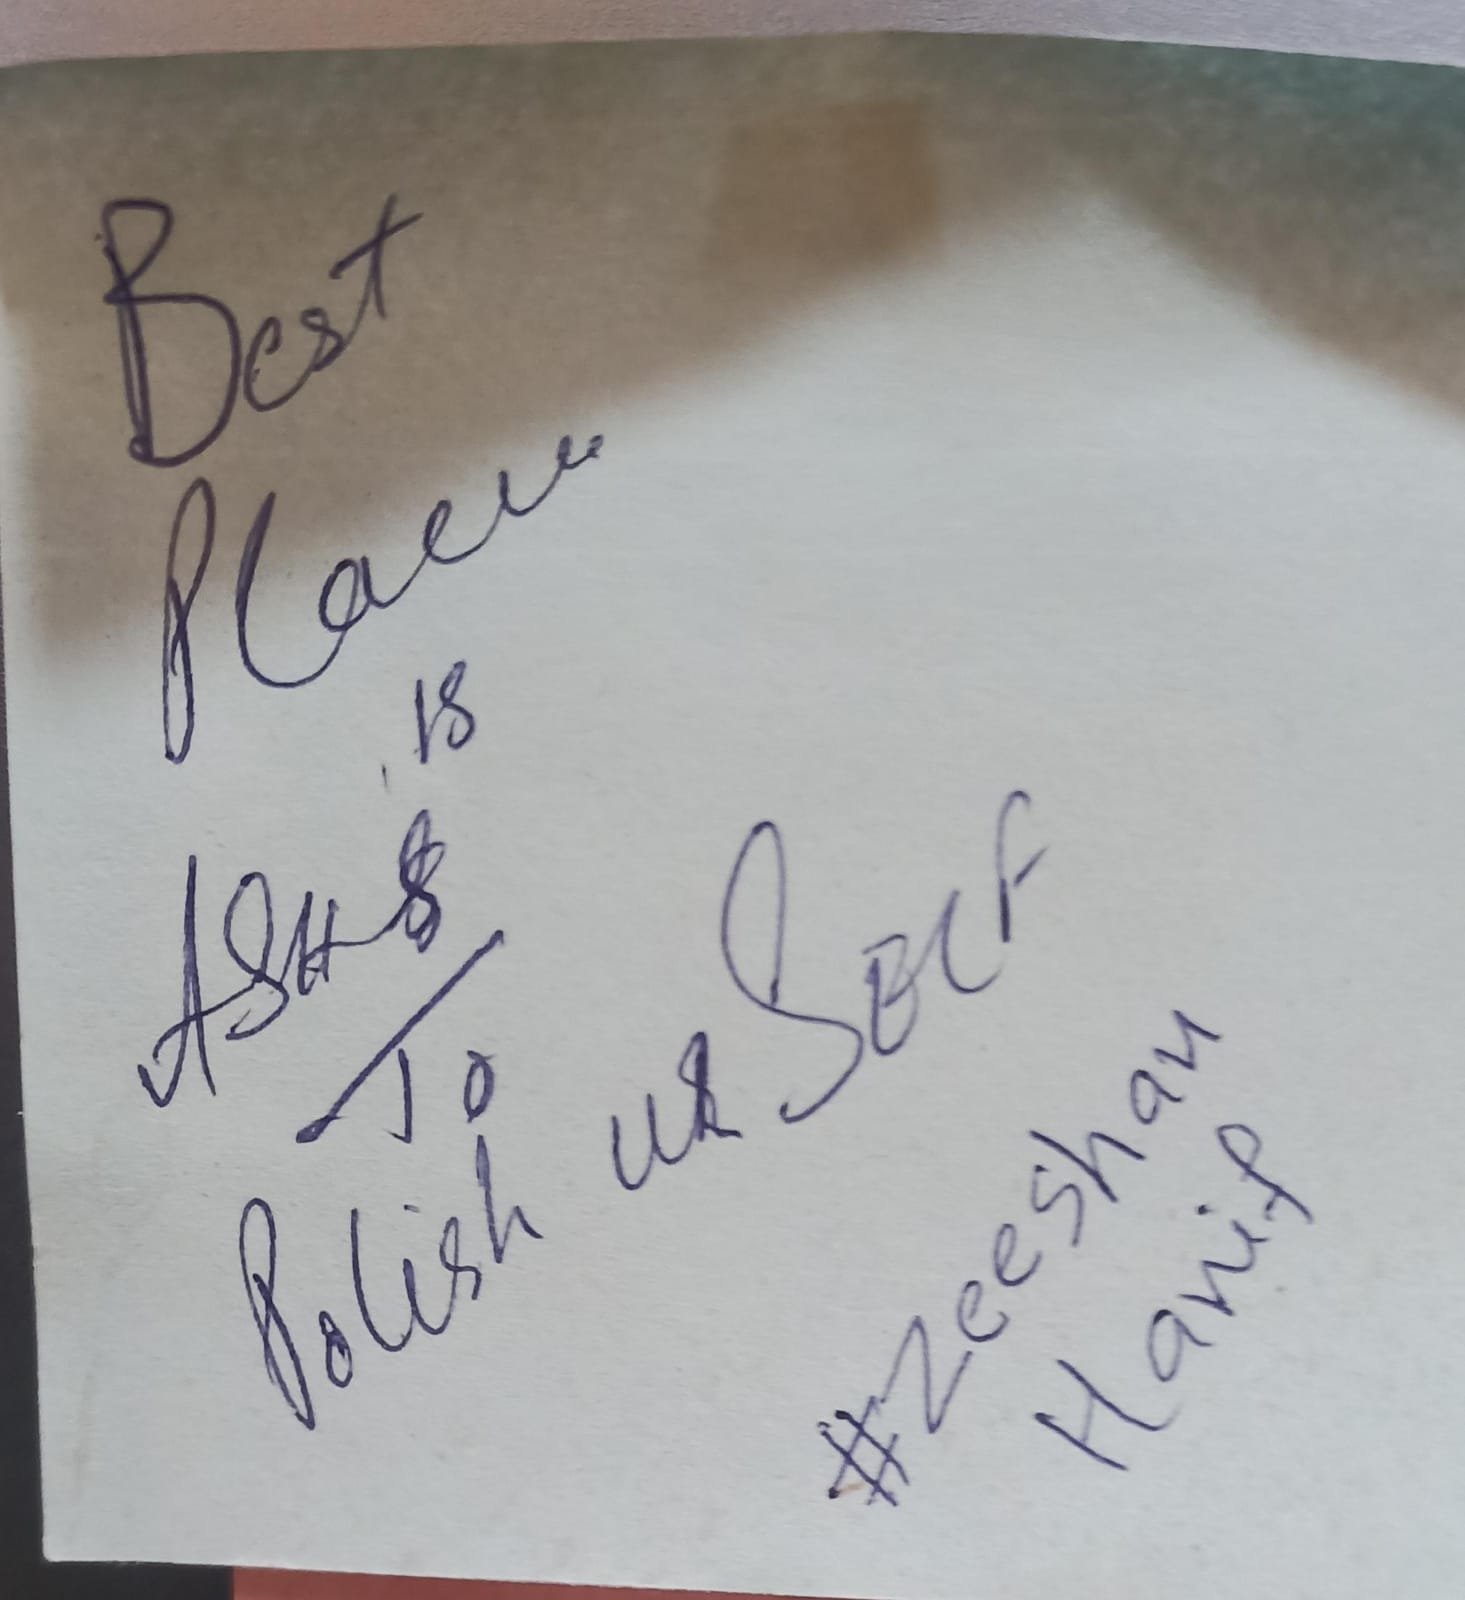 Best
Place
is
To
Polish ur SELF
#Zeeshan
Hanif